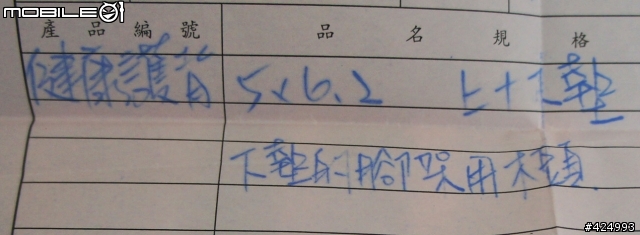 MOBILE01
產品編號 品名規格
健康護背 5x6.2 上+下墊
下墊的腳架用木頭
#424993